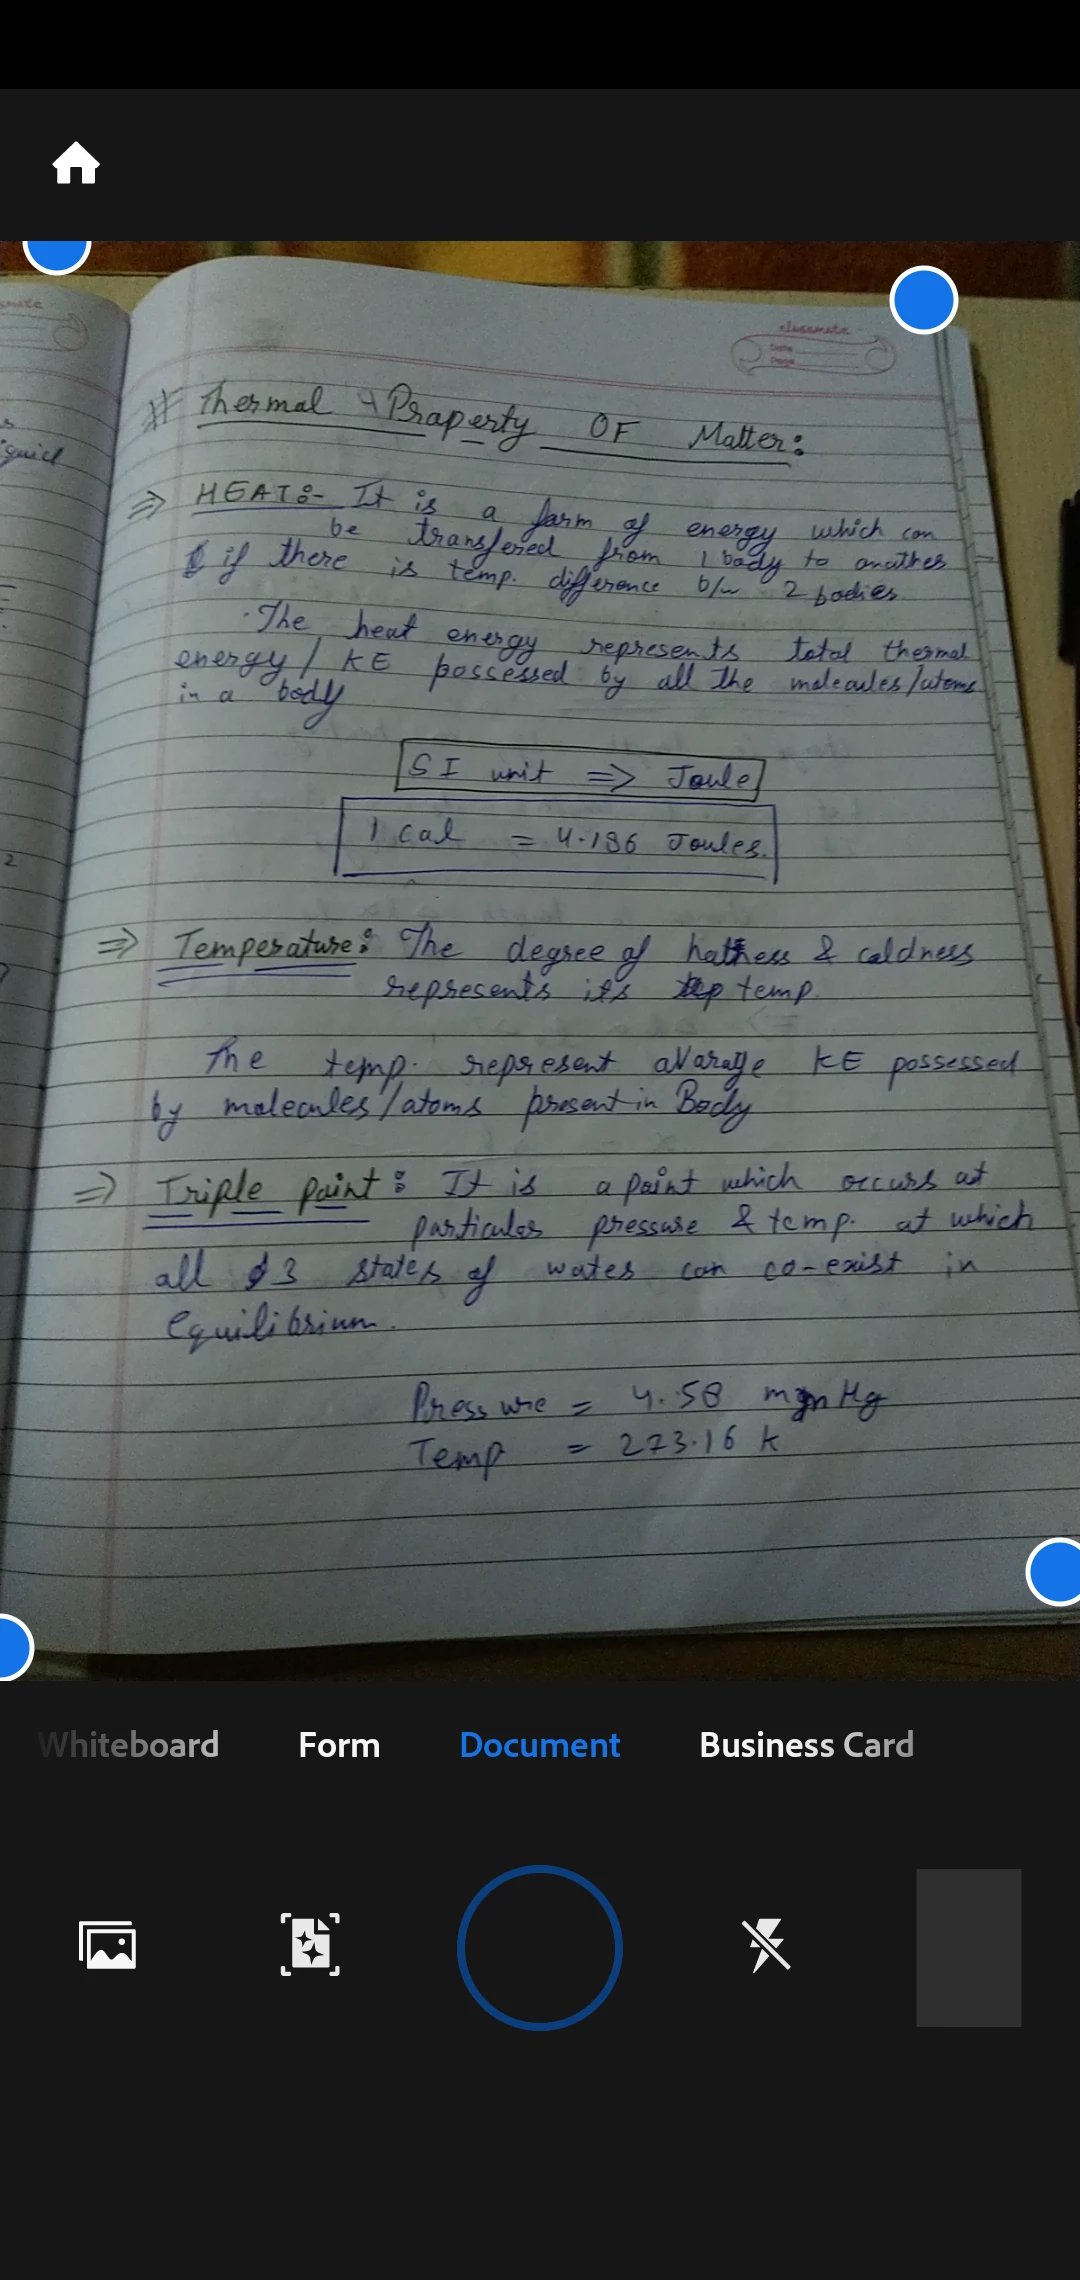 classmate
Date
Page
# Thermal Property OF Matter:
⇒ HEAT:- It is a form of energy which can
be transfered from 1 body to another
if there is temp. difference b/w 2 bodies
. The heat energy represents total thermal
energy / KE possessed by all the molecules/atoms
in a body
SI unit ⇒ Joule
1 cal = 4.186 Joules.
⇒ Temperature: The degree of hotness & coldness
represents its temp.
The temp. represent avarage KE possessed
by molecules/atoms present in Body
⇒ Triple point: It is a point which occurs at
particular pressure & temp. at which
all 3 states of water can co-exist in
equilibrium.
Pressure = 4.58 mm Hg
Temp = 273.16 k
2
Whiteboard Form Document Business Card